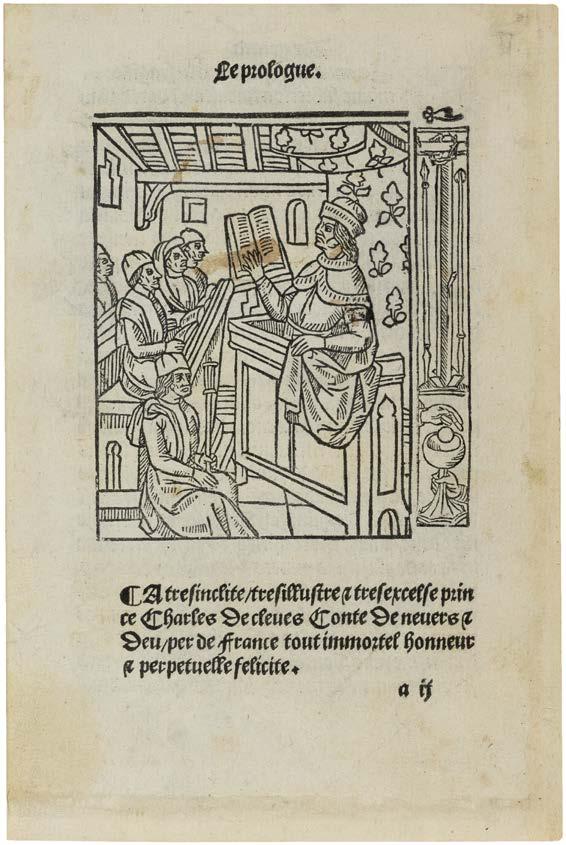 Le prologue.
¶A tresinclite/tresillustre ⁊ tresexcelse prin
ce Charles De cleves Conte De nevers ⁊
Deu/per de France tout immortel honneur
⁊ perpetuelle felicite.
a ij